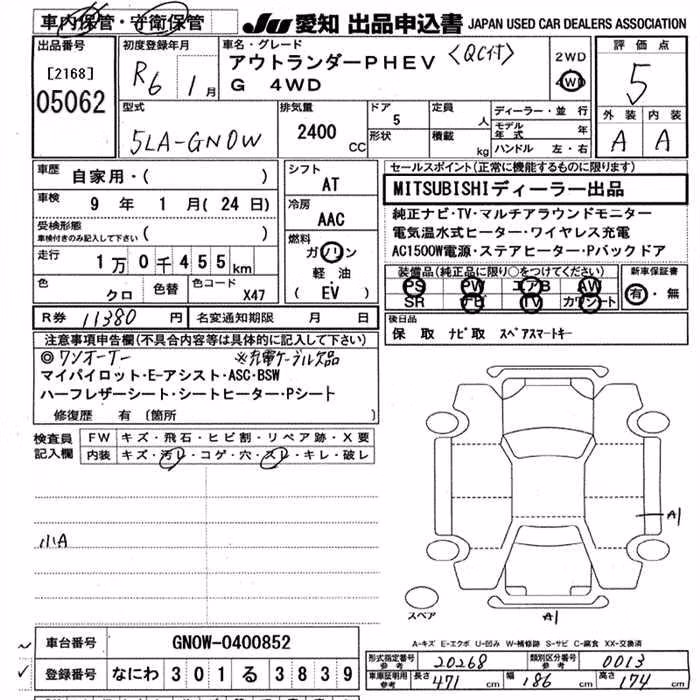 車内保管・守衛保管
JU 愛知 出品申込書 JAPAN USED CAR DEALERS ASSOCIATION
出品番号
[2168]
05062
初度登録年月
R6 1月
車名・グレード
アウトランダーPHEV 〈QC付〉
G 4WD
2WD
4WD
評価点
5
外装 内装
A A
型式
5LA-GN0W
排気量
2400 CC
ドア
5
形状
定員
人
積載
kg
ディーラー・並行
モデル年式 年
ハンドル 左・右
車歴
自家用・( )
車検
9年 1月(24日)
受検形態
車検付きのみ記入して下さい ( )
走行
1万0千455km
色
クロ
色替
色コード
X47
シフト
AT
冷房
AAC
燃料
ガソリン
軽油
(EV)
セールスポイント(正常に機能するものに限ります)
MITSUBISHIディーラー出品
純正ナビ・TV・マルチアラウンドモニター
電気温水式ヒーター・ワイヤレス充電
AC1500W電源・ステアヒーター・Pバックドア
装備品(純正品に限り○をつけてください)
PS PW エアB AW
SR ナビ TV カワシート
新車保証書
有・無
R券 11380円
名変通知期限 月 日
後日品
保 取 ナビ取 スペアスマートキー
注意事項申告欄(不具合内容等は具体的に記入して下さい)
◎ワンオーナー ※充電ケーブル欠品
マイパイロット・E-アシスト・ASC・BSW
ハーフレザーシート・シートヒーター・Pシート
修復歴 有 〔箇所
検査員記入欄
FW キズ・飛石・ヒビ割・リペア跡・X要
内装 キズ・汚レ・コゲ・穴・スレ・キレ・破レ
小A
A1
スペア
A1
A-キズ E-エクボ U-凹み W-補修跡 S-サビ C-腐食 XX-交換済
車台番号 GN0W-0400852
登録番号 なにわ 301 る 3839
形式指定番号 参考 20268 類別区分番号 参考 0013
車庫証明用 参考 長さ 471cm 幅 186cm 高さ 174cm